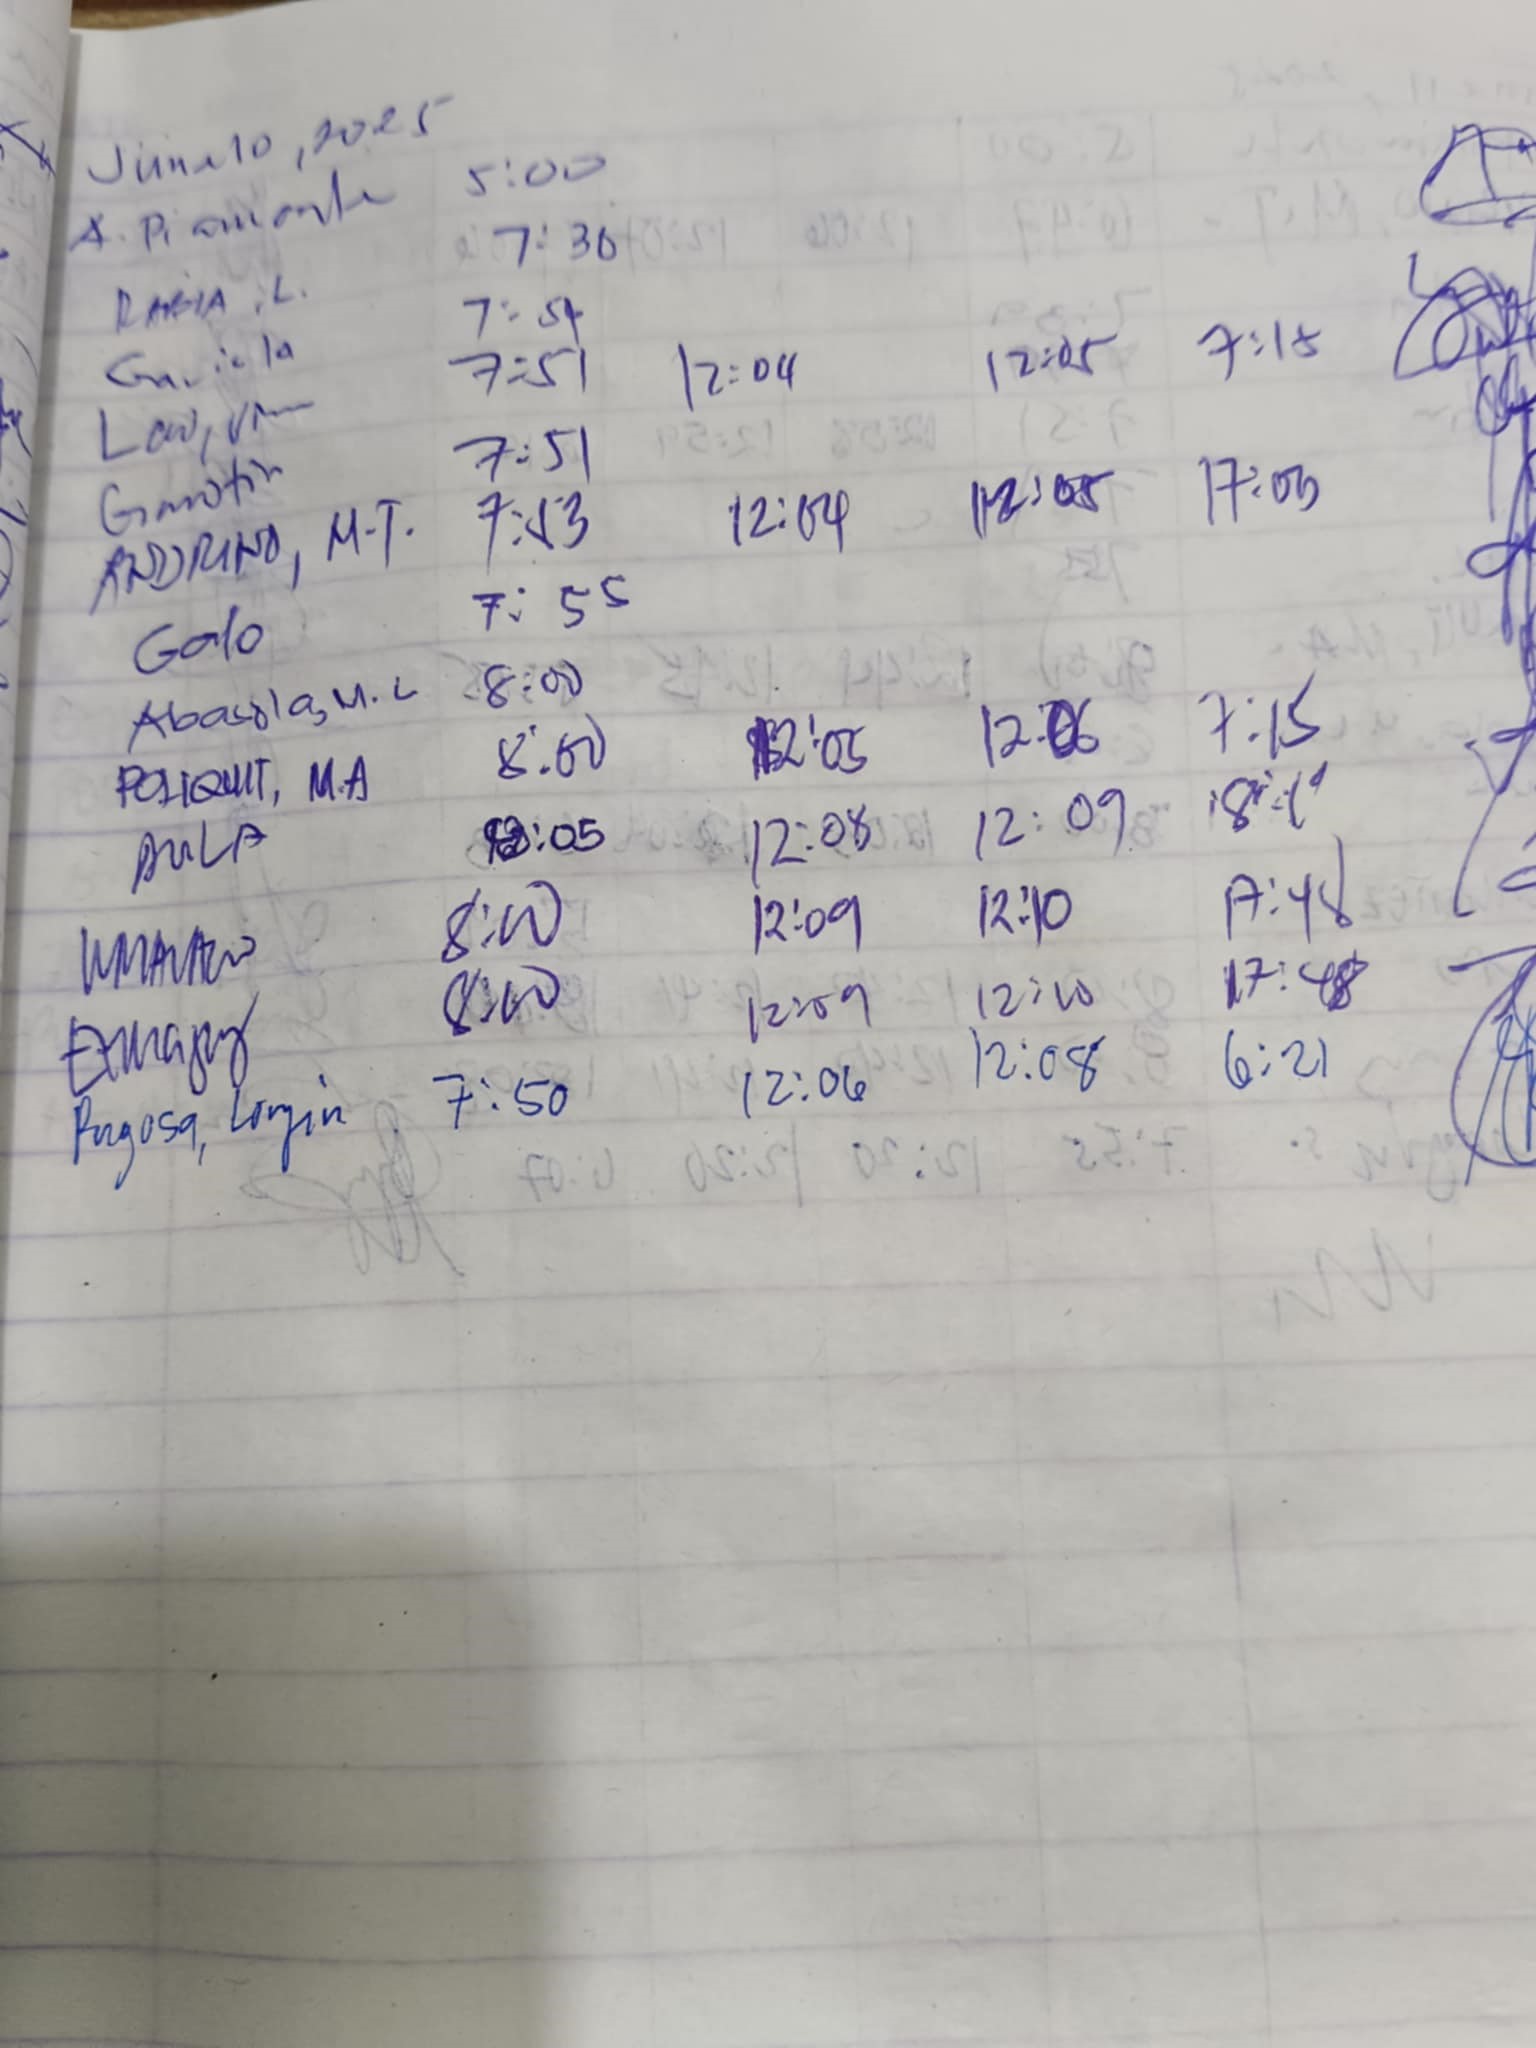 June 10, 2025
A. Piamonte 5:00
RABIA, L. 7:30
Gaviola 7:54
Law, VM 7:51 12:04 12:05 7:15
Gamotin 7:51
ANDRINO, M.T. 7:53 12:04 12:05 17:03
Galo 7:55
Abasola, M. L 8:00
POLIQUIT, M.A 8:00 12:05 12:06 7:15
AULA 8:05 12:08 12:09
8:00 12:09 12:10 17:48
8:00 12:09 12:10 17:48
Ragosa, Longin 7:50 12:06 12:08 6:21